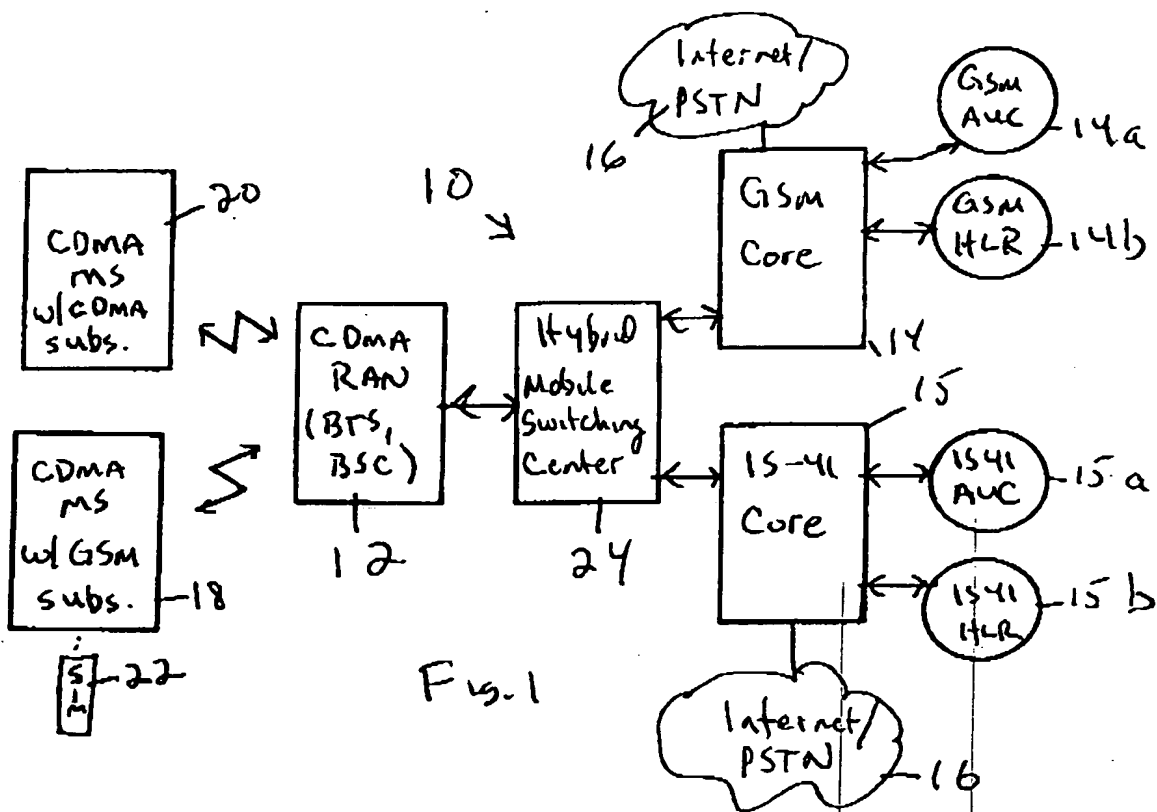 Internet/
PSTN
16
GSM
AUC
14a
GSM
HLR
14b
GSM
Core
14
10
20
CDMA
MS
w/CDMA
subs.
CDMA
RAN
(BTS,
BSC)
12
Hybrid
Mobile
Switching
Center
24
15
IS-41
Core
IS41
AUC
15a
IS41
HLR
15b
CDMA
MS
w/GSM
subs.
18
SIM
22
Fig. 1
Internet/
PSTN
16